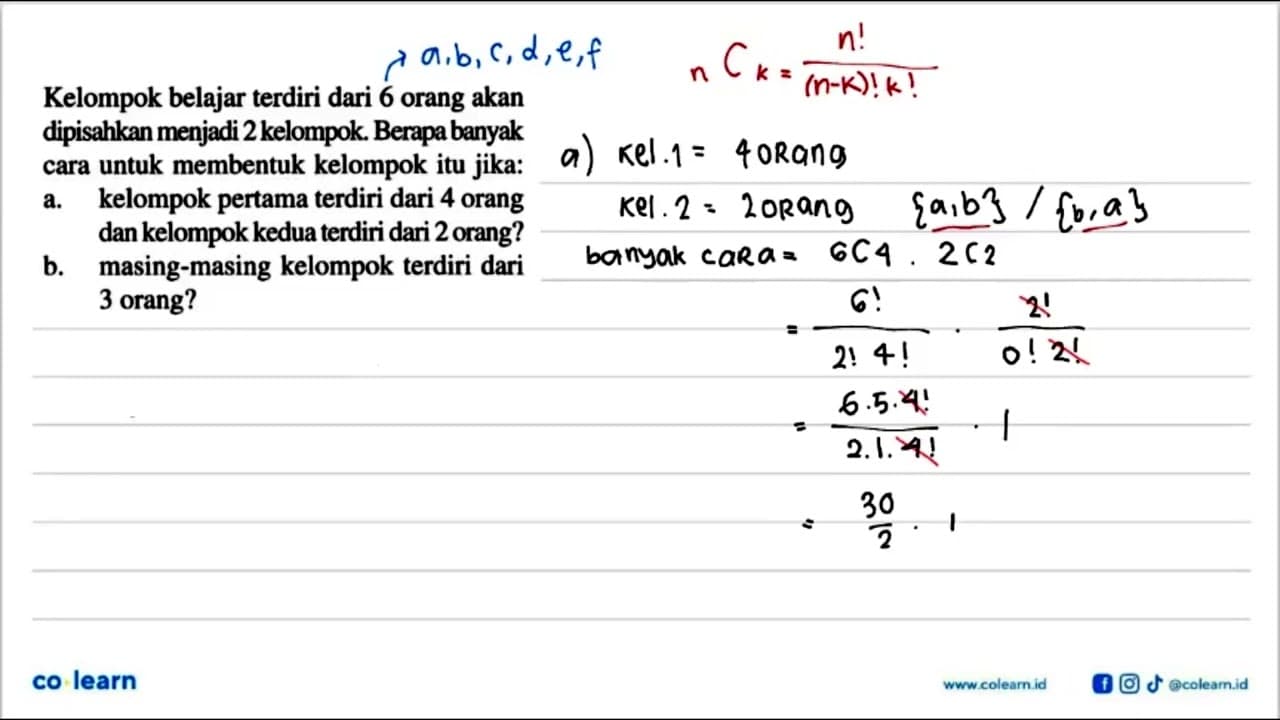 a, b, c, d, e, f
nCk = n! / (n-k)! k!
Kelompok belajar terdiri dari 6 orang akan
dipisahkan menjadi 2 kelompok. Berapa banyak
cara untuk membentuk kelompok itu jika:
a. kelompok pertama terdiri dari 4 orang
dan kelompok kedua terdiri dari 2 orang?
b. masing-masing kelompok terdiri dari
3 orang?
a) Kel. 1 = 4 ORang
Kel. 2 = 2 ORang {a,b} / {b,a}
banyak caRa = 6C4 . 2C2
= 6! / 2! 4! . 2! / 0! 2!
= 6.5.4! / 2.1.4! . 1
= 30 / 2 . 1
co learn
www.colearn.id
@colearn.id